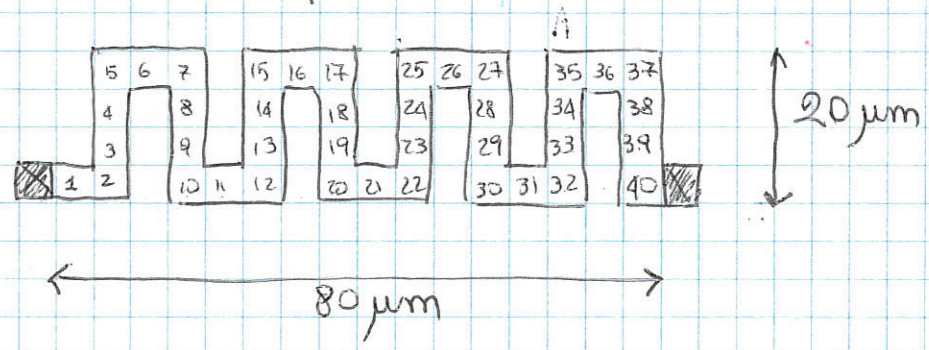 5 6 7 15 16 17 25 26 27 35 36 37
4 8 14 18 24 28 34 38 20 μm
3 9 13 19 23 29 33 39
1 2 10 11 12 20 21 22 30 31 32 40
80 μm